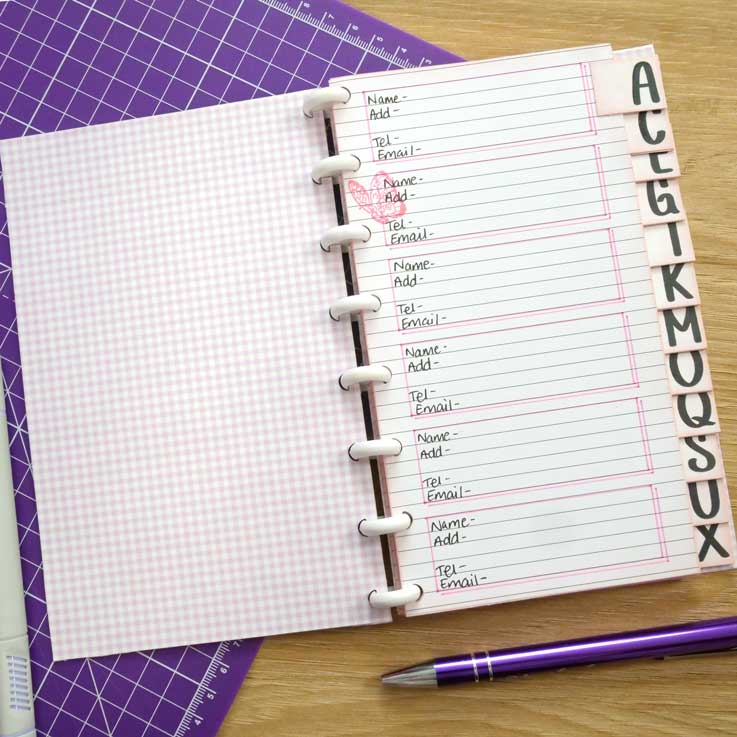 8
7
6
5
4
3
Name-
Add-
Tel-
Email-
Name-
Add-
Tel-
Email-
Name-
Add-
Tel-
Email-
Name-
Add-
Tel-
Email-
Name-
Add-
Tel-
Email-
Name-
Add-
Tel-
Email-
A
C
E
G
I
K
M
O
Q
S
U
X
6
5
4